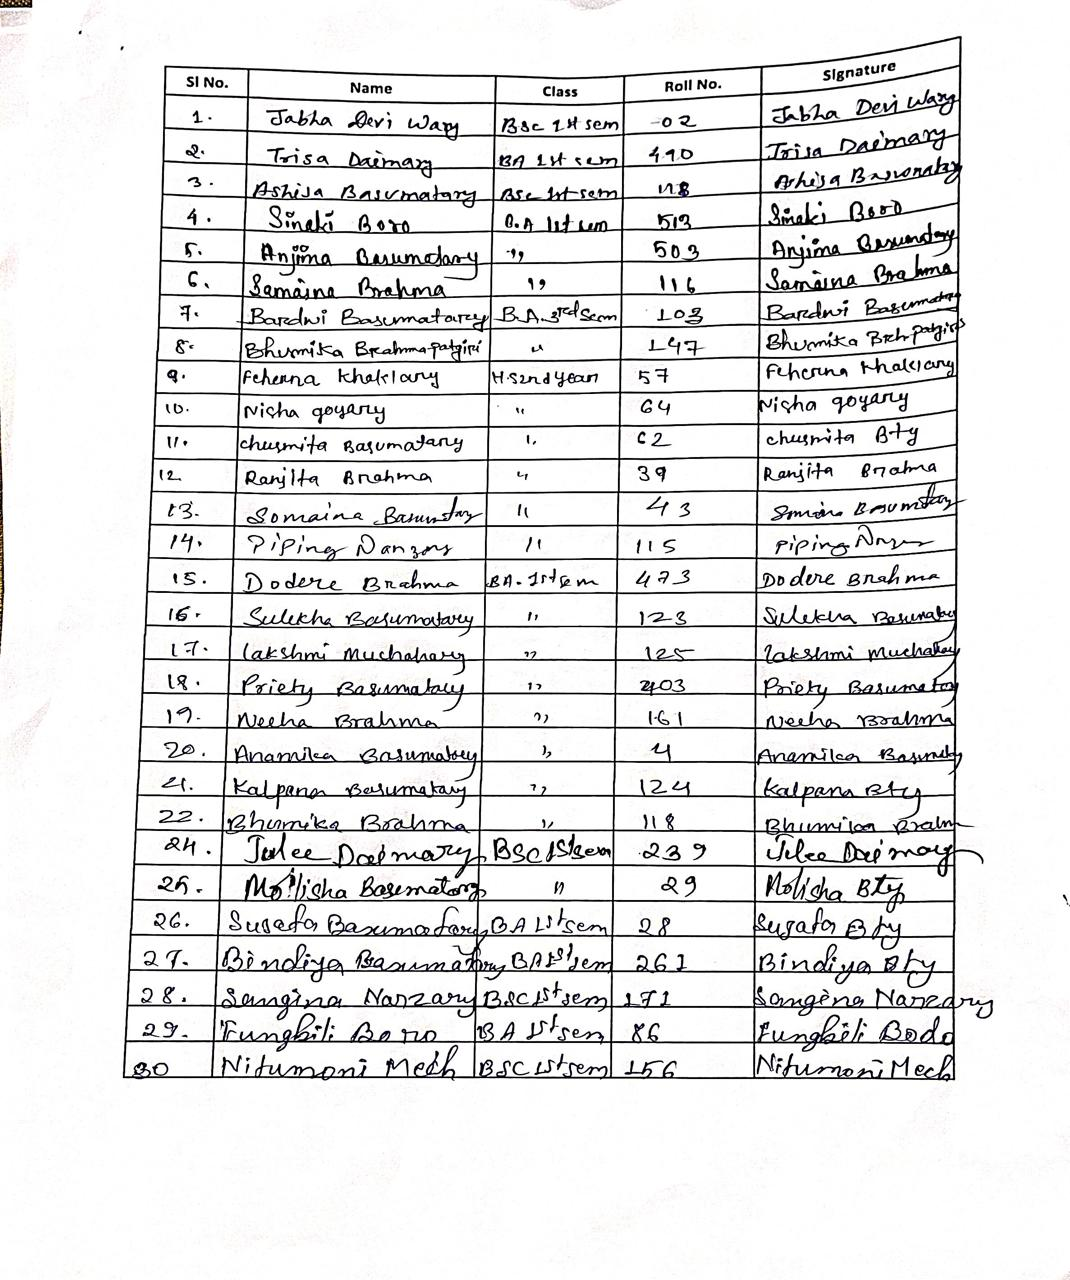 Sl No. Name Class Roll No. Signature
1. Jabha Devi Wary BSc 1st sem 02 Jabha Devi Wary
2. Trisa Daimary BA 1st sem 490 Trisa Daimary
3. Ashisa Basumatary BSc 1st sem 118 Ashisa Basumatary
4. Sinaki Boro B.A 1st sem 513 Sinaki Boro
5. Anjima Basumatary ,, 503 Anjima Basumatary
6. Samaina Brahma ,, 116 Samaina Brahma
7. Bardwi Basumatarey B.A. 3rd Sem 103 Bardwi Basumatary
8. Bhumika Brahma patgiri " 147 Bhumika Brh patgiri
9. Feherna Khaklary H.S 2nd year 57 Feherna Khaklary
10. Nisha goyary " 64 Nisha goyary
11. chusmita Basumatary " 62 chusmita Bty
12. Ranjita Brahma " 39 Ranjita Brahma
13. Somaina Basumatary " 43 Basumatary
14. Piping " 115 Piping
15. Dodere Brahma BA. 1st sem 473 Dodere Brahma
16. Sulekha Basumatary ,, 123 Sulekha Basumatary
17. Lakshmi Muchahary ,, 125 Lakshmi Muchahary
18. Priety Basumatary ,, 403 Priety Basumatary
19. Neeha Brahma ,, 161 Neeha Brahma
20. Anamika Basumatary ,, 4 Anamika Basumatary
21. Kalpana Basumatary ,, 124 Kalpana Bty
22. Bhumika Brahma ,, 118 Bhumika Brahm
24. Julee Daimary BSc 1st sem 239 Julee Daimary
25. Molisha Basumatary " 29 Molisha Bty
26. Sugata Basumatary BA 1st sem 28 Sugata Bty
27. Bindiya Basumatary BA 1st sem 261 Bindiya Bty
28. Sangina Narzary BSC 1st sem 171 Sangina Narzary
29. Fungbili Boro BA 1st sem 86 Fungbili Bodo
30 Nitumoni Mech BSC 1st sem 156 Nitumoni Mech